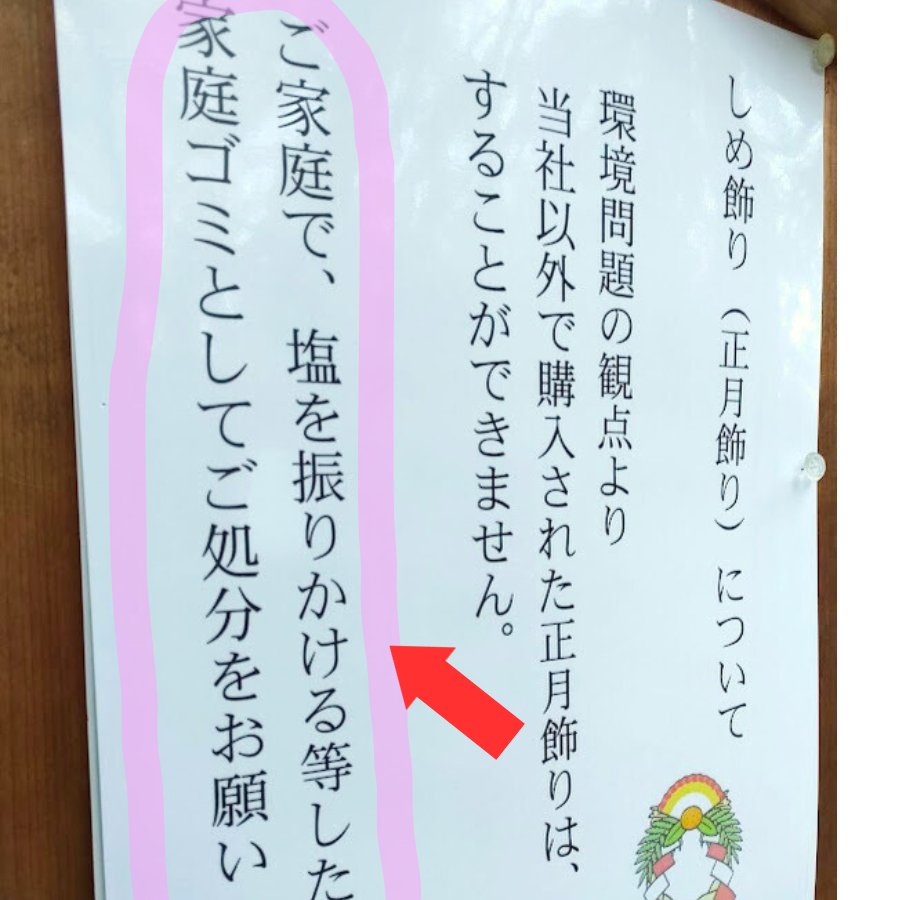 しめ飾り（正月飾り）について
環境問題の観点より
当社以外で購入された正月飾りは、
することができません。
ご家庭で、塩を振りかける等した
家庭ゴミとしてご処分をお願い